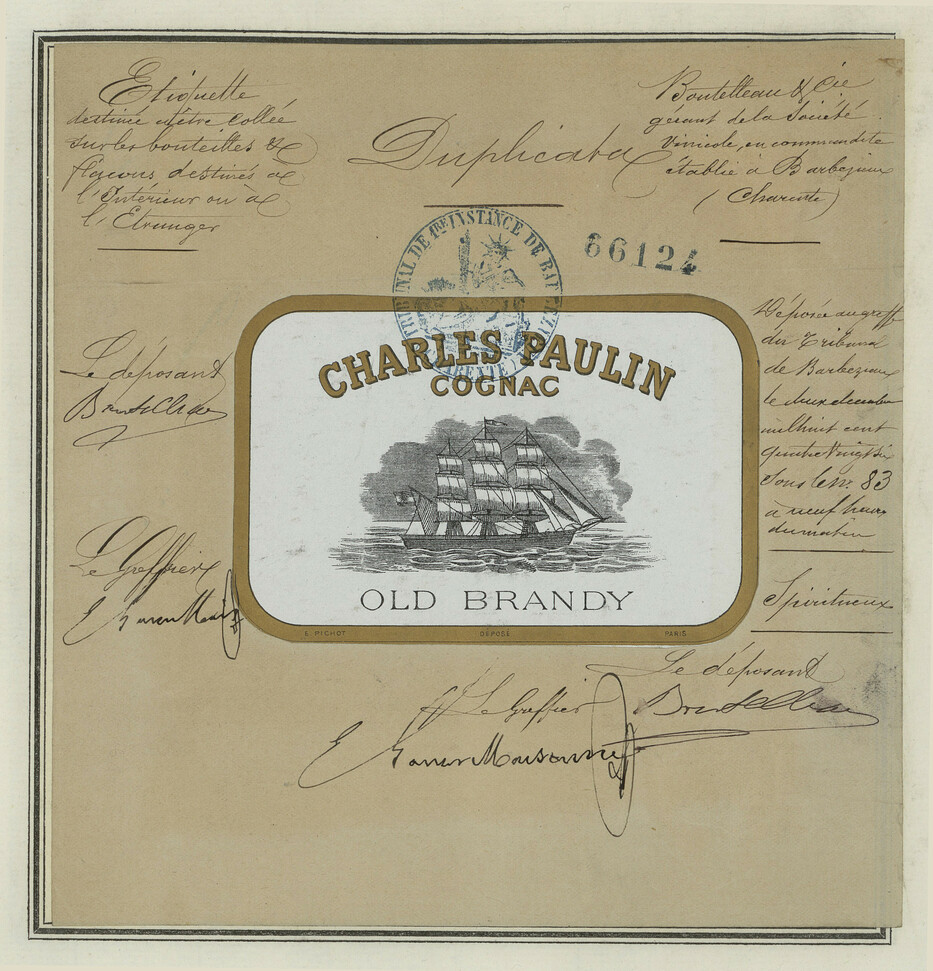 Etiquette
destinée à être collée
sur les bouteilles &
flacons destinés à
l'Intérieur ou à
l'Étranger
Duplicata
Boutelleau & Cie
gérant de la Société
vinicole, en commandite
établie à Barbezieux
(Charente)
TRIBUNAL DE 1RE INSTANCE DE BARBEZIEUX
CHARENTE
66124
CHARLES PAULIN
COGNAC
OLD BRANDY
E. PICHOT DÉPOSÉ PARIS
Le déposant
Boutelleau
Le Greffier
Déposée au greffe
du Tribunal
de Barbezieux
le deux décembre
mil huit cent
quatre vingt six
sous le no. 83
à neuf heures
du matin
Spiritueux
Le déposant
Boutelleau
Le Greffier